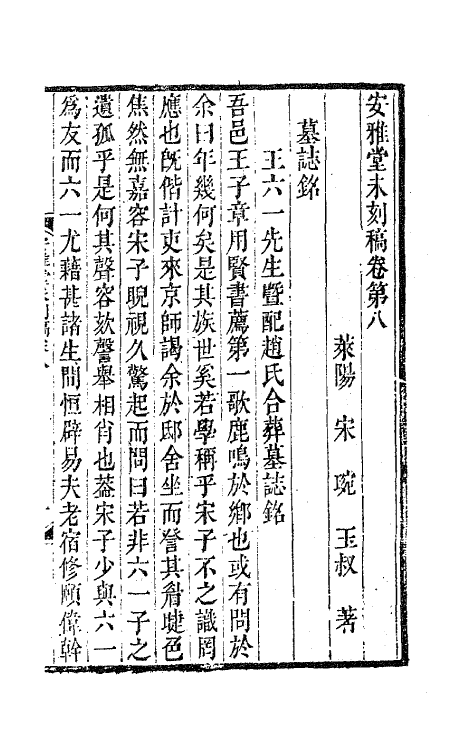 安雅堂未刻稿卷第八
萊陽 宋 琬 玉叔 著
墓誌銘
王六一先生暨配趙氏合葬墓誌銘
吾邑王子章用賢書薦第一歌鹿鳴於鄉也或有問於
余曰年幾何矣是其族世奚若學稱乎宋子不之識罔
應也旣偕計吏來京師謁余於邸舍坐而詧其眉睫色
焦然無嘉容宋子睨視久驚起而問曰若非六一子之
遺孤乎是何其聲容欬謦舉相肖也葢宋子少與六一
爲友而六一尤藉甚諸生間恒辟易夫老宿修頎偉幹